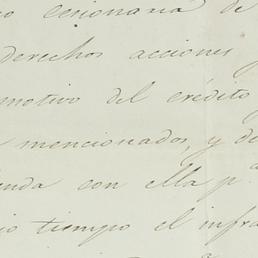 cesionaria de
derechos acciones y
motivo del crédito
mencionados, y de
con ella p.ª
tiempo el infra